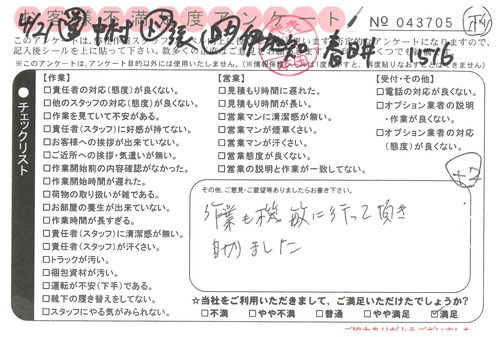 お客様不満足度アンケート
No 043705
このアンケートは、
記入後シールを上に貼って下さい。
※このアンケートは、アンケート目的以外には使用いたしません。
春日井 1516
チェックリスト
【作業】
□責任者の対応(態度)が良くない。
□他のスタッフの対応(態度)が良くない。
□作業を見ていて不安がある。
□責任者(スタッフ)に好感が持てない。
□お客様への挨拶が出来ていない。
□ご近所への挨拶・気遣いが無い。
□作業開始前の内容確認がなかった。
□作業開始時間が遅れた。
□荷物の取り扱いが雑である。
□お部屋の養生が出来ていない。
□作業時間が長すぎる。
□責任者(スタッフ)に清潔感が無い。
□責任者(スタッフ)が汗くさい。
□トラックが汚い。
□梱包資材が汚い。
□運転が不安(下手)である。
□靴下の履き替えをしてない。
□スタッフにやる気がみられない。
【営業】
□見積もり時間に遅れた。
□見積もり時間が長い。
□営業マンに清潔感が無い。
□営業マンが煙草くさい。
□営業マンが汗くさい。
□営業態度が良くない。
□営業の説明と作業が一致してない。
【受付・その他】
□電話の対応が良くない。
□オプション業者の説明
・作業が良くない。
□オプション業者の対応
(態度)が良くない。
+2
その他、ご意見・ご要望等ありましたらお書き下さい。
作業も機敏に行って頂き
助かりました
☆当社をご利用いただきまして、ご満足いただけたでしょうか?
□不満 □やや不満 □普通 □やや満足 ☑満足
ご協力ありがとうございました